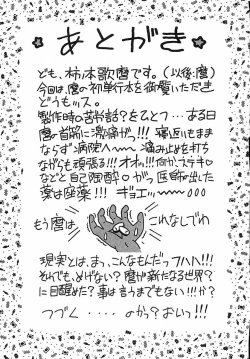 あとがき
ども、柿ノ本歌麿です。(以後:麿)
今回は、麿の初単行本を御覧いただき
どうもッス。
製作時の苦労話?をひとつ…ある日
麿の首筋に激痛がっ!!!寝返りもまま
ならず病院へ〜〜痛み止めを打ち
ながらも頑張る!!!オオ!!何か、ステキ♡
などと自己陶酔♡がっ、医師が出した
薬は座薬!!!ギョエ〜〜〜ooo
もう麿は
こんなしでわ
現実とは、まっ、こんなもんだっフハハ!!!
それでも、めげない?麿が新たなる世界?
に目醒めた?事は言うまでもない!!!か?
つづく・・・・のか?おいっ!!!